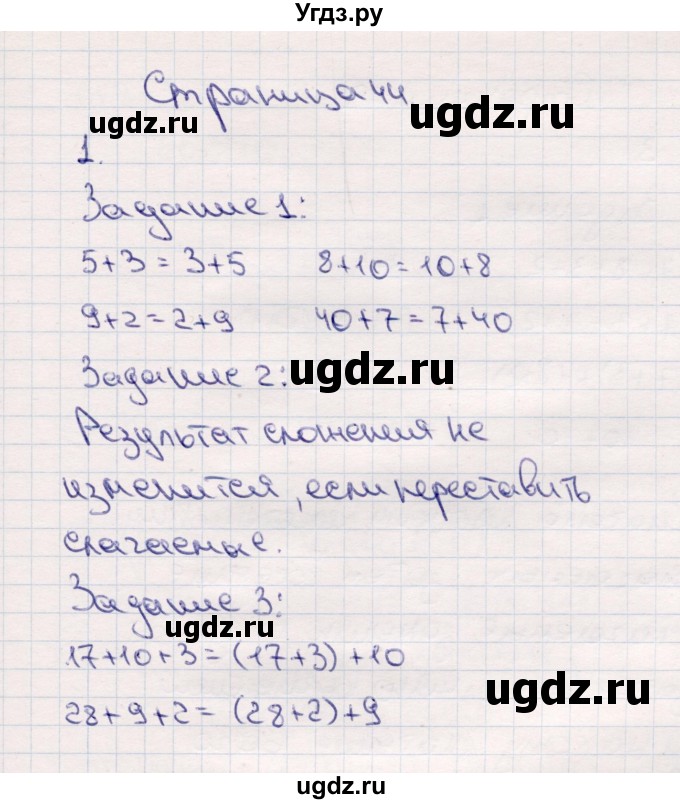 Угдз.ру
Страница 44
ugdz.ru ugdz.ru
1.
Задание 1:
5+3=3+5 8+10=10+8
9+2=2+9 40+7=7+40
Задание 2: ugdz.ru
Результат сложения не
изменится, если переставить
слагаемые.
Задание 3:
ugdz.ru
17+10+3=(17+3)+10
ugdz.ru
28+9+2=(28+2)+9
ugdz.ru